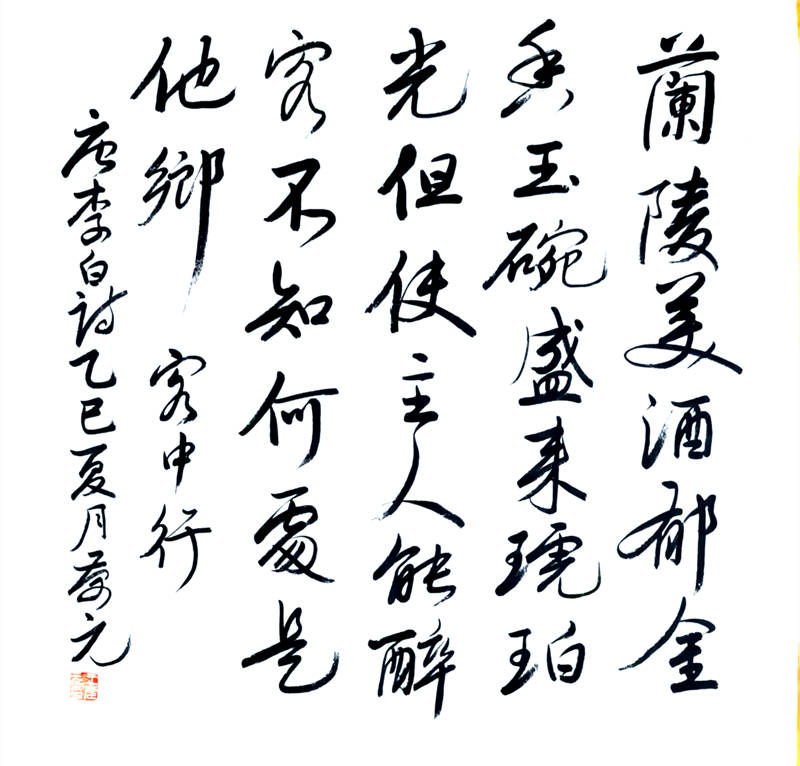 蘭陵美酒郁金
香玉碗盛来琥珀
光但使主人能醉
客不知何處是
他鄉 客中行
唐李白诗乙巳夏月荣元